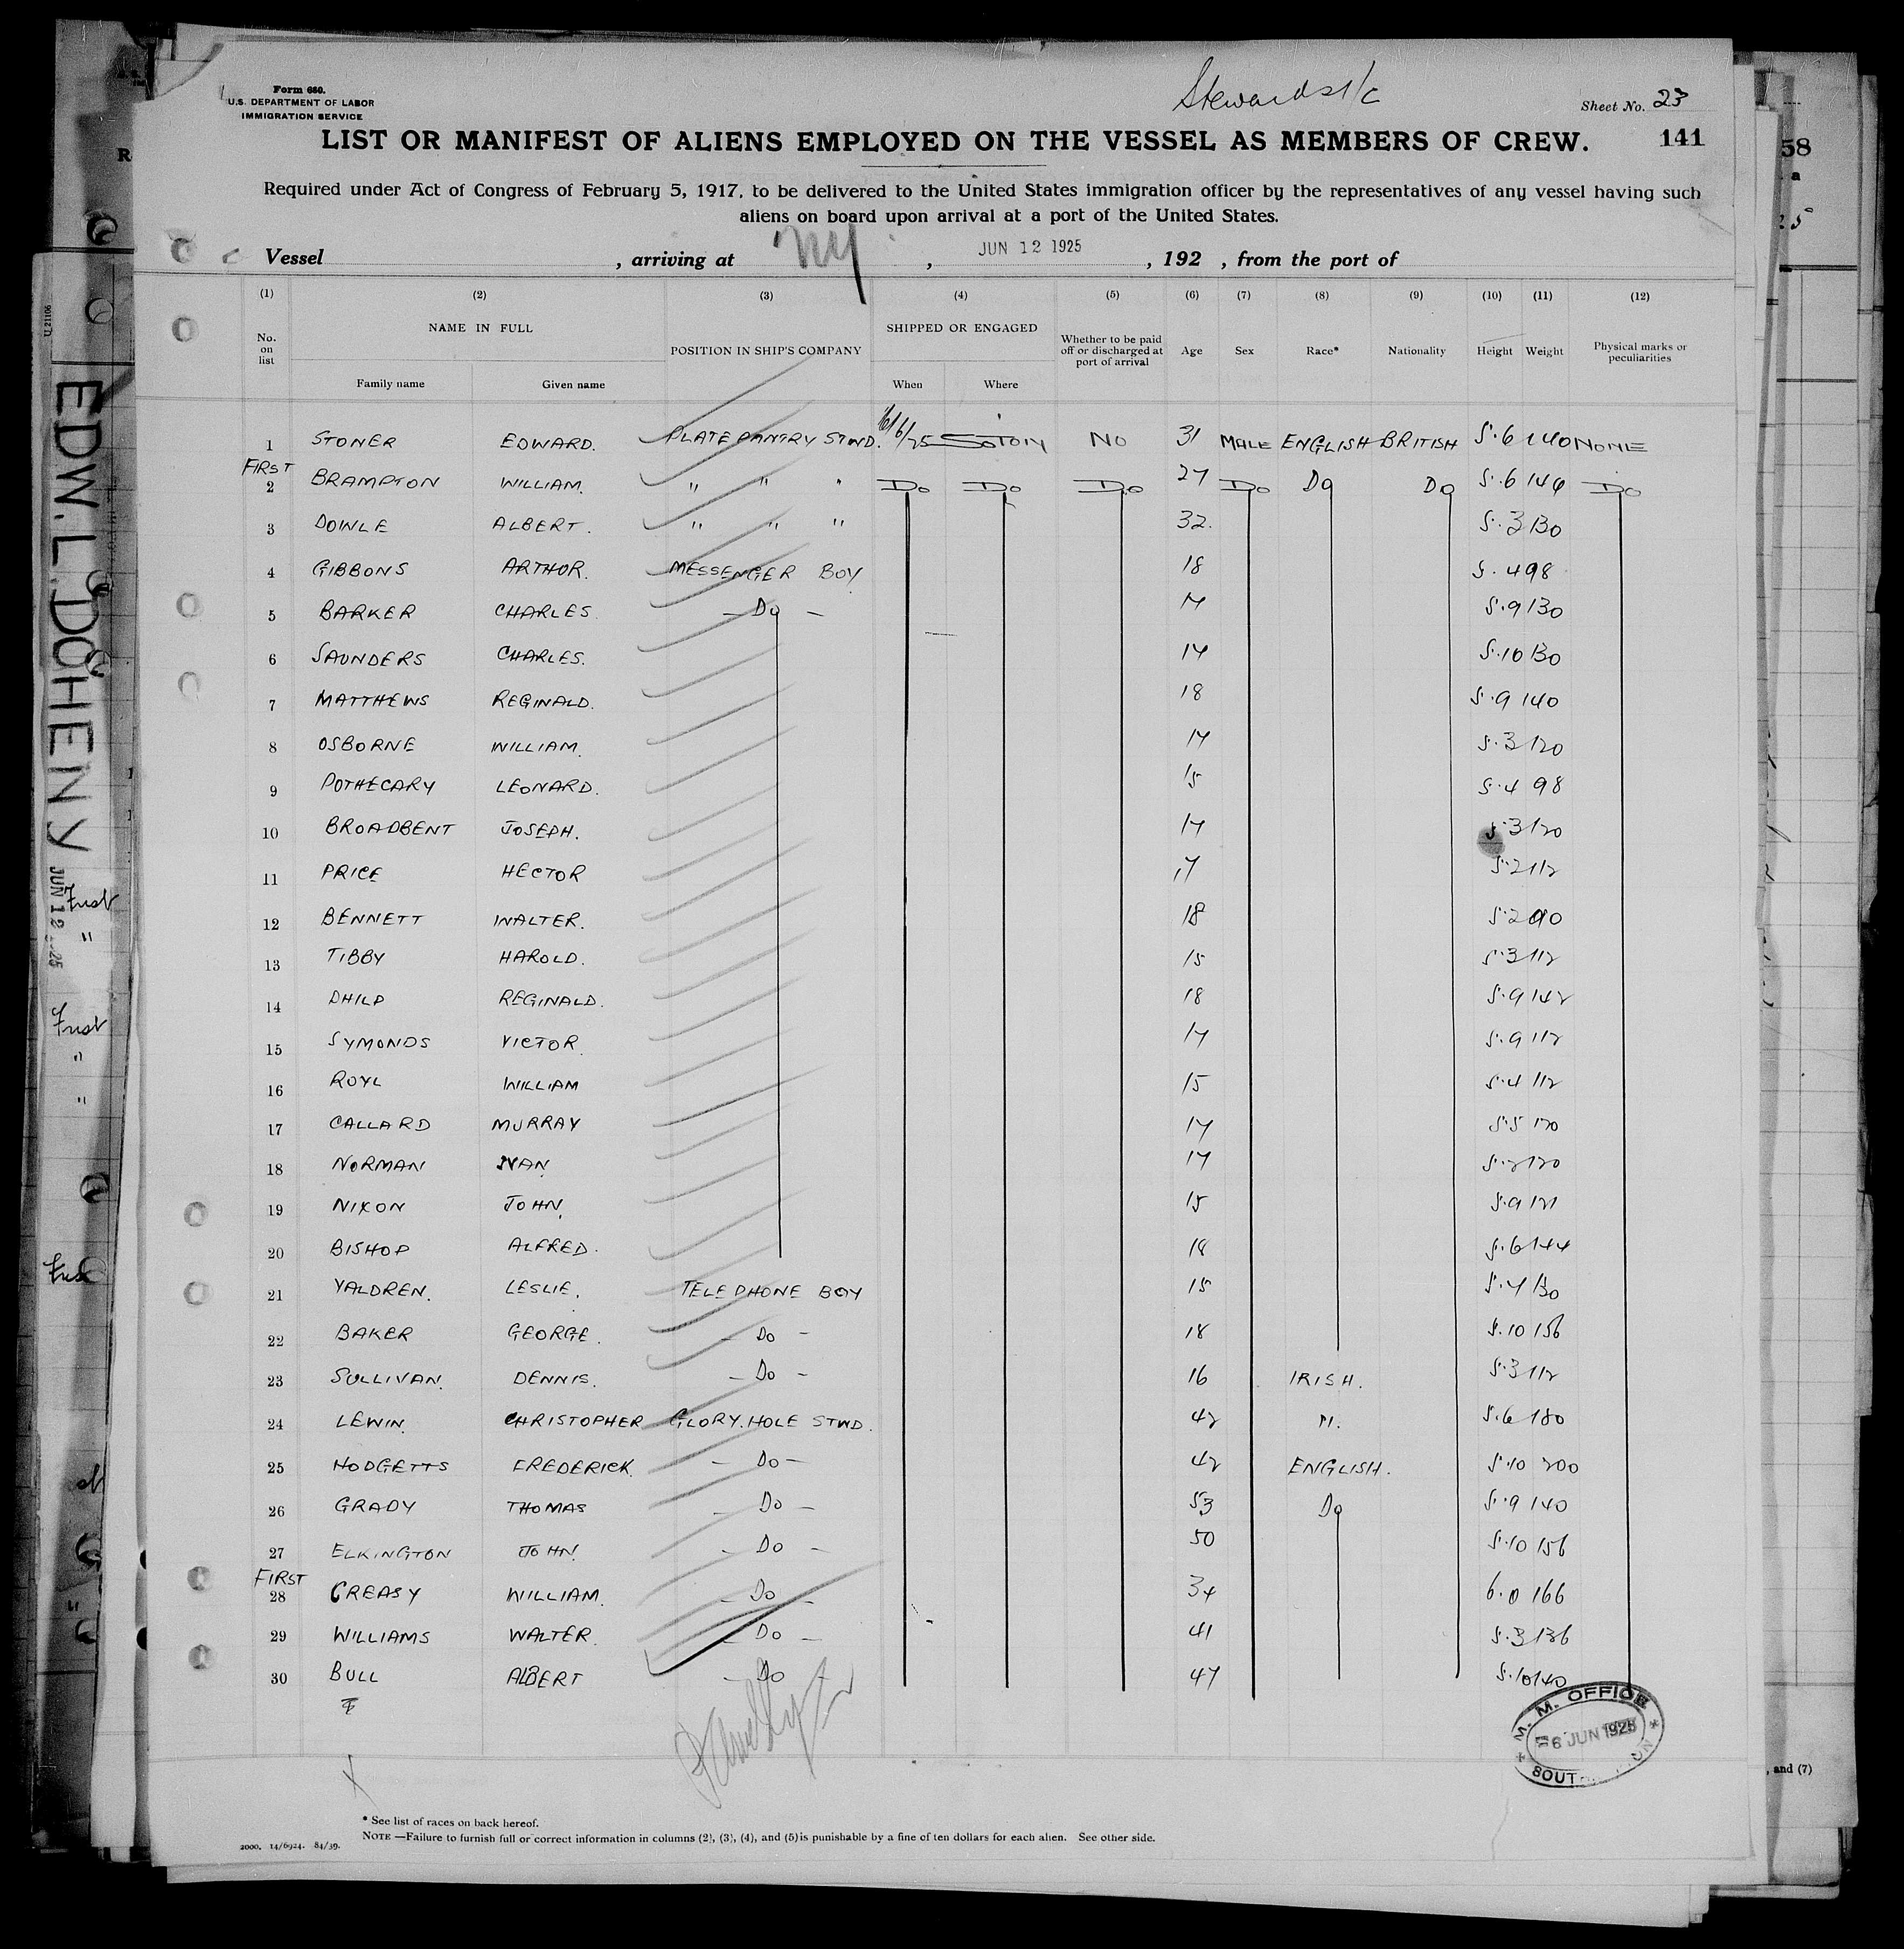 Form 680.
U.S. DEPARTMENT OF LABOR
IMMIGRATION SERVICE
Stewards 1/c
Sheet No. 23
LIST OR MANIFEST OF ALIENS EMPLOYED ON THE VESSEL AS MEMBERS OF CREW.
141
Required under Act of Congress of February 5, 1917, to be delivered to the United States immigration officer by the representatives of any vessel having such
aliens on board upon arrival at a port of the United States.
Vessel , arriving at NY , JUN 12 1925 , 192 , from the port of
(1) (2) (3) (4) (5) (6) (7) (8) (9) (10) (11) (12)
No. on list NAME IN FULL POSITION IN SHIP'S COMPANY SHIPPED OR ENGAGED Whether to be paid off or discharged at port of arrival Age Sex Race* Nationality Height Weight Physical marks or peculiarities
Family name Given name When Where
1 STONER EDWARD. PLATE PANTRY STWD. 6/6/25 SOTON NO 31 MALE ENGLISH BRITISH 5.6 140 NONE
FIRST
2 BRAMPTON WILLIAM. " " " Do Do Do 27 Do Do Do 5.6 146 Do
3 DOWLE ALBERT. " " " 32. 5.3 130
4 GIBBONS ARTHUR. MESSENGER BOY 18 5.4 98
5 BARKER CHARLES. — Do — 17 5.9 130
6 SAUNDERS CHARLES. 17 5.10 130
7 MATTHEWS REGINALD. 18 5.9 140
8 OSBORNE WILLIAM. 17 5.3 120
9 POTHECARY LEONARD. 15 5.4 98
10 BROADBENT JOSEPH. 17 5.3 120
11 PRICE HECTOR 17 5.2 112
12 BENNETT WALTER. 18 5.2 90
13 TIBBY HAROLD. 15 5.3 112
14 PHILP REGINALD. 18 5.9 142
15 SYMONDS VICTOR. 17 5.9 112
16 ROYL WILLIAM 15 5.4 112
17 CALLARD MURRAY 17 5.5 120
18 NORMAN IVAN 17 5.2 120
19 NIXON JOHN. 15 5.9 121
20 BISHOP ALFRED. 18 5.6 144
21 YALDREN. LESLIE. TELEPHONE BOY 15 5.7 130
22 BAKER GEORGE. — Do — 18 5.10 156
23 SULLIVAN. DENNIS. — Do — 16 IRISH. 5.3 112
24 LEWIN. CHRISTOPHER GLORY.HOLE STWD. 42 ". 5.6 180
25 HODGETTS FREDERICK. — Do — 42 ENGLISH. 5.10 200
26 GRADY THOMAS — Do — 53 Do 5.9 140
27 ELKINGTON JOHN. — Do — 50 5.10 156
FIRST
28 CREASY WILLIAM. — Do — 34 6.0 166
29 WILLIAMS WALTER. — Do — 41 5.3 136
30 BULL ALBERT — Do 47 5.10 140
M. M. OFFICE
6 JUN 1925
* See list of races on back hereof.
NOTE —Failure to furnish full or correct information in columns (2), (3), (4), and (5) is punishable by a fine of ten dollars for each alien. See other side.
2000. 14/6924. 84/39.
U 21106
EDW. L. DOHENY
JUN 12 1925
First
"
First
"
"
58
, and (7)